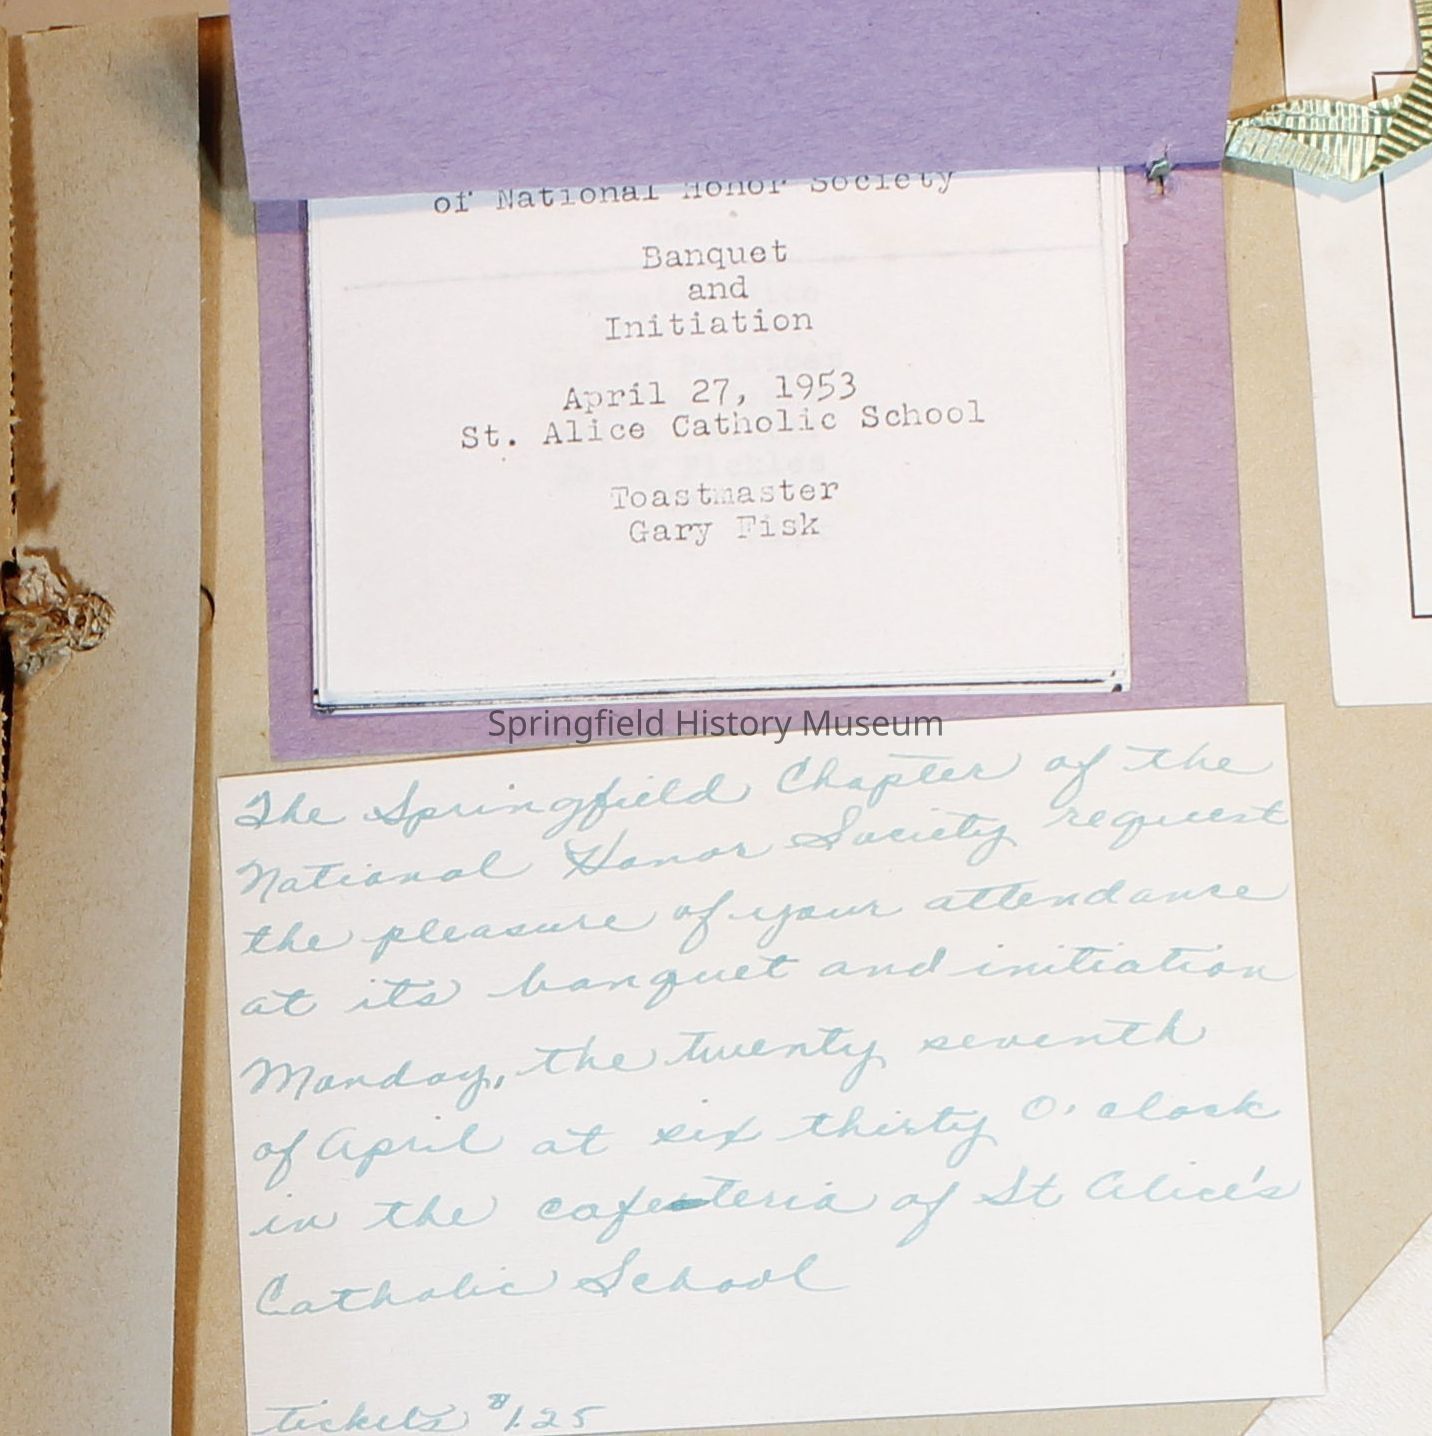 of National Honor Society
Banquet
and
Initiation
April 27, 1953
St. Alice Catholic School
Toastmaster
Gary Fisk
Springfield History Museum
The Springfield Chapter of the
National Honor Society request
the pleasure of your attendance
at its banquet and initiation
Monday, the twenty seventh
of April at six thirty O'clock
in the cafeteria of St Alice's
Catholic School
tickets $1.25